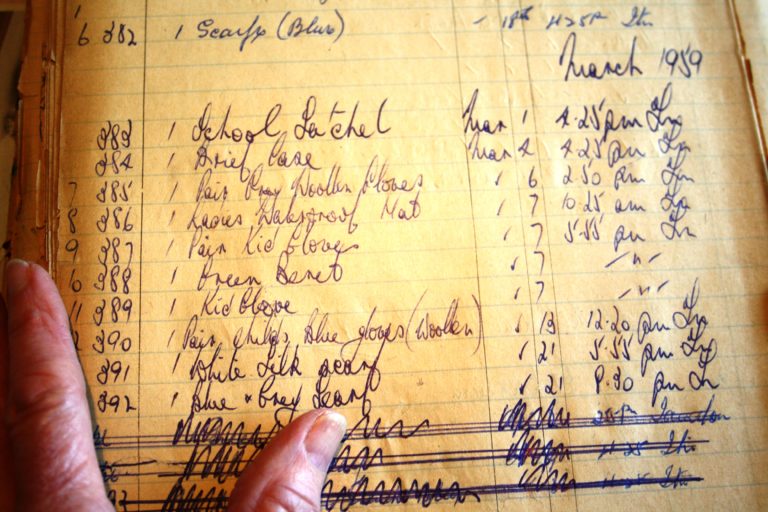 6 382 1 Scarfs (Blue) - 18th 4.25P
March 1959
383 1 School Satchel Mar 1 4.25 pm
384 1 Brief Case Mar 4 4.25 pm
7 385 1 Pair Grey Woollen Gloves " 6 2 50 pm
8 386 1 Ladies Waterproof Hat " 7 10.25 am
9 387 1 Pair Kid Gloves " 7 5.55 pm
388 1 Green Beret " 7 " "
11 389 1 Kid Glove " 7 " "
390 1 Pair childs blue gloves (Woollen) " 13 12.20 pm
391 1 White Silk scarf " 21 5.55 pm
392 1 Blue & Grey Scarf " 21 8.30 pm